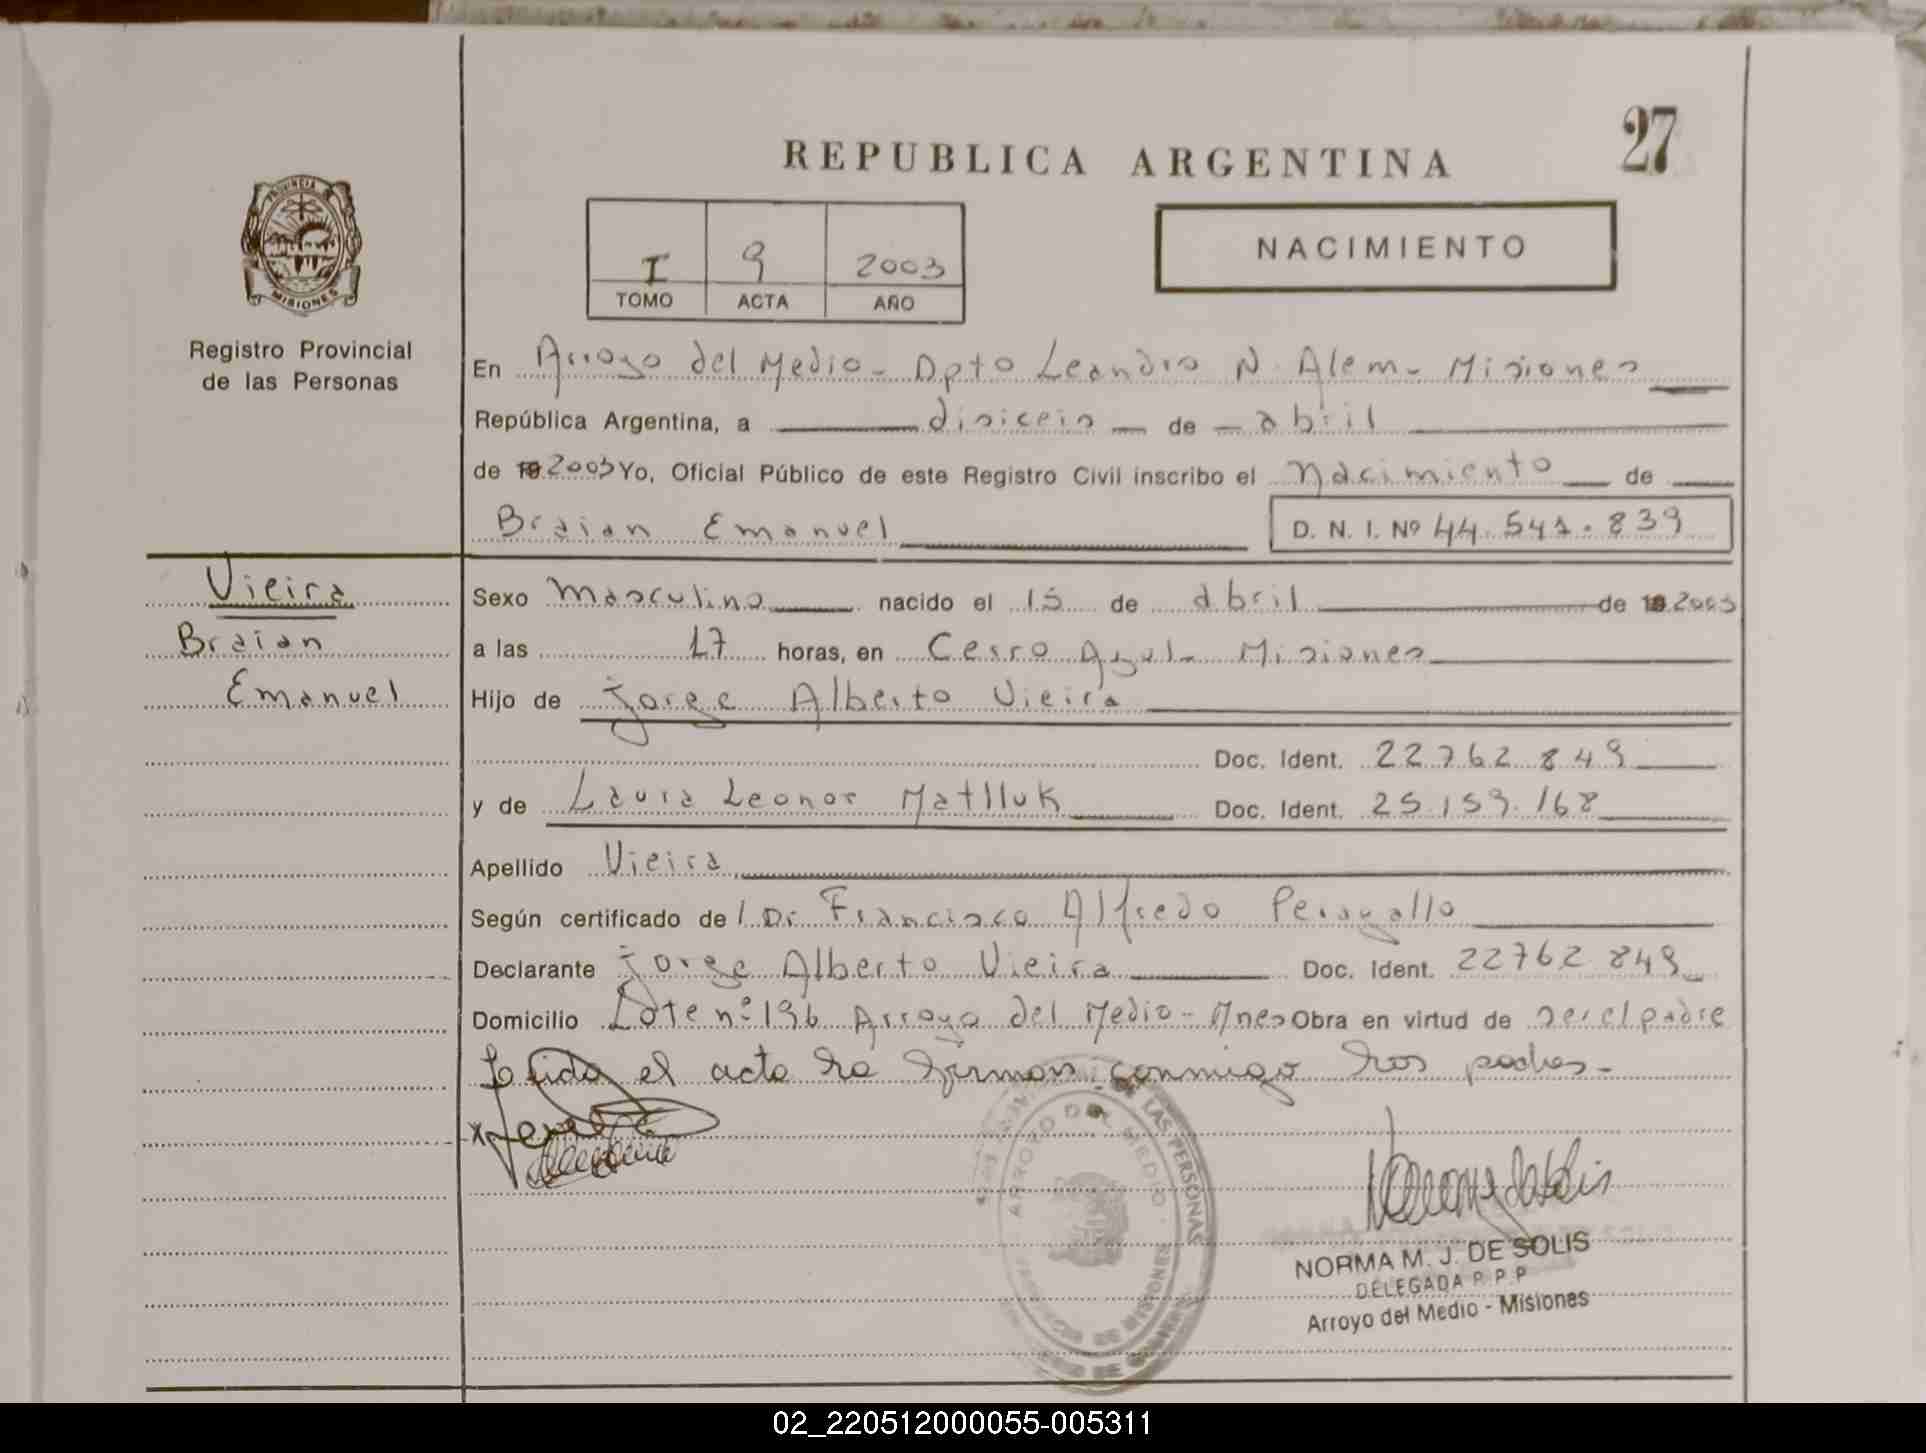 27
REPUBLICA ARGENTINA
NACIMIENTO
I 9 2003
TOMO ACTA AÑO
PROVINCIA DE
MISIONES
Registro Provincial
de las Personas
En Arroyo del Medio - Dpto Leandro N. Alem - Misiones
República Argentina, a disiceis de abril
de 19 2003 Yo, Oficial Público de este Registro Civil inscribo el Nacimiento de
Braian Emanuel D. N. I. Nº 44.541.839
Vieira
Braian
Emanuel
Sexo Masculino nacido el 15 de abril de 19 2003
a las 17 horas, en Cerro Azul - Misiones
Hijo de Jorge Alberto Vieira
Doc. Ident. 22762849
y de Laura Leonor Matlluk Doc. Ident. 25.159.168
Apellido Vieira
Según certificado de / Dr Francisco Alfredo Peragallo
Declarante Jorge Alberto Vieira Doc. Ident. 22762849
Domicilio Lote nº 196 Arroyo del Medio - Mnes Obra en virtud de ser el padre
Leida el acta la firman conmigo los padres -
x
DE LAS PERSONAS
ARROYO DEL MEDIO
PROVINCIA DE MISIONES
NORMA M. J. DE SOLIS
DELEGADA R.P.P
Arroyo del Medio - Misiones
02_220512000055-005311